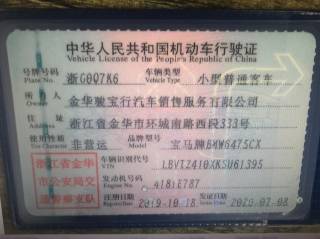 中华人民共和国机动车行驶证
Vehicle License of the People's Republic of China
号牌号码 浙G0Q7K6 车辆类型 小型普通客车
Plate No. Vehicle Type
所有人 金华骏宝行汽车销售服务有限公司
Owner
住址 浙江省金华市环城南路西段333号
Address
使用性质 非营运 品牌型号 宝马牌BMW6475CX
Use Character Model
浙江省金华 车辆识别代号 LBVTZ410XKSU61395
VIN
市公安局交 发动机号码 4181E787
Engine No.
通警察支队 注册日期 2019-10-18 发证日期 2020-07-08
Register Date Issue Date